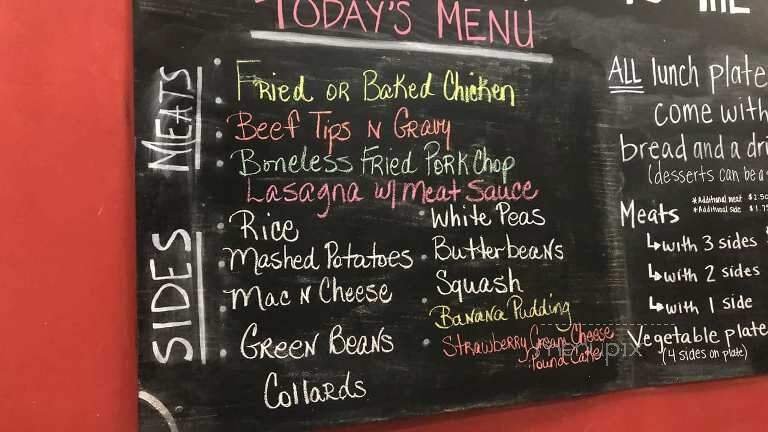 TODAY'S MENU
MEATS
Fried or Baked Chicken
Beef Tips N Gravy
Boneless Fried Pork Chop
Lasagna w/ Meat Sauce
SIDES
Rice
Mashed Potatoes
Mac N Cheese
Green Beans
Collards
White Peas
Butterbeans
Squash
Banana Pudding
Strawberry Cream Cheese
Pound Cake
ALL lunch plate
come with
bread and a dri
(desserts can be a
Meats
*Additional meat $2.50
*Additional side $1.75
with 3 sides
with 2 sides
with 1 side
Vegetable plate
(4 sides on plate)
menupix